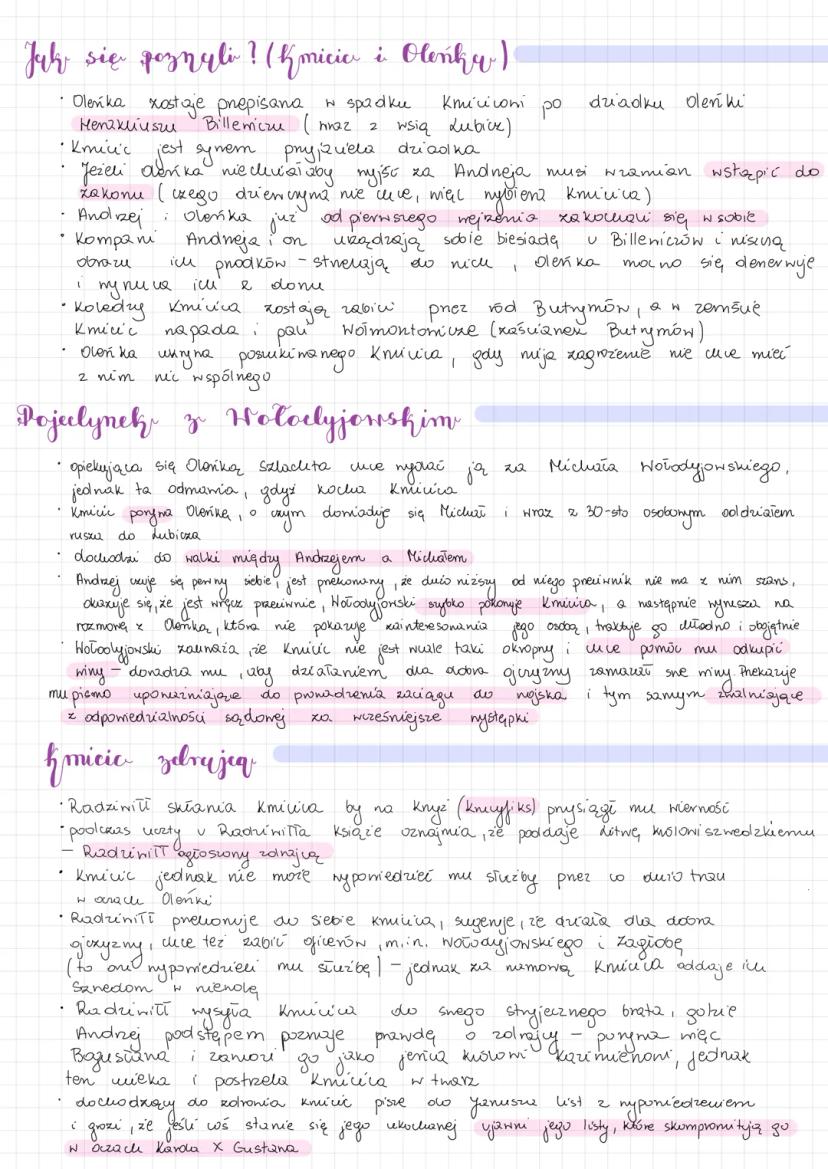 Jak się poznali? (Kmicic i Oleńka)
· Oleńka zostaje przepisana w spadku Kmicicowi po dziadku Oleńki
Herakliuszu Billewiczu (wraz z wsią Lubicz)
· Kmicic jest synem przyjaciela dziadka
· Jeżeli Oleńka nie chciałaby wyjść za Andrzeja musi w zamian wstąpić do
zakonu (czego dziewczyna nie chce, więc wybiera Kmicica)
· Andrzej i Oleńka już od pierwszego wejrzenia zakochali się w sobie
· Kompani Andrzeja i on urządzają sobie biesiadę u Billewiczów i niszczą
obrazy ich przodków – strzelają do nich, Oleńka mocno się denerwuje
i wyrzuca ich z domu
· Koledzy Kmicica zostają zabici przez ród Butrymów, a w zemście
Kmicic napada i pali Wołmontowicze (zaścianek Butrymów)
· Oleńka ukrywa poszukiwanego Kmicica, gdy mija zagrożenie nie chce mieć
z nim nic wspólnego
Pojedynek z Wołodyjowskim
· opiekująca się Oleńką Szlachta chce wydać ją za Michała Wołodyjowskiego,
jednak ta odmawia, gdyż kocha Kmicica
· Kmicic porywa Oleńkę, o czym dowiaduje się Michał i wraz z 30-sto osobowym oddziałem
rusza do Lubicza
· dochodzi do walki między Andrzejem a Michałem
· Andrzej czuje się pewny siebie, jest przekonany, że dużo niższy od niego przeciwnik nie ma z nim szans,
okazuje się, że jest wręcz przeciwnie, Wołodyjowski szybko pokonuje Kmicica, a następnie wyrusza na
rozmowę z Oleńką, która nie pokazuje zainteresowania jego osobą, traktuje go chłodno i obojętnie
· Wołodyjowski zauważa, że Kmicic nie jest wcale taki okropny i chce pomóc mu odkupić
winy – doradza mu, aby działaniem dla dobra ojczyzny zamazał swe winy. Przekazuje
mu pismo upoważniające do prowadzenia zaciągu do wojska i tym samym zwalniające
z odpowiedzialności sądowej za wcześniejsze występki
Kmicic zdrajcą
· Radziwiłł skłania Kmicica by na krzyż (krucyfiks) przysiągł mu wierność
· podczas uczty u Radziwiłła książe oznajmia, że poddaje Litwę królowi szwedzkiemu
– Radziwiłł ogłoszony zdrajcą
· Kmicic jednak nie może wypowiedzieć mu służby przez co dużo traci
w oczach Oleńki
· Radziwiłł przekonuje do siebie Kmicica, sugeruje, że działa dla dobra
ojczyzny, chce też zabić oficerów, m.in. Wołodyjowskiego i Zagłobę
(to oni wypowiedzieli mu służbę) – jednak za namową Kmicica oddaje ich
Szwedom w niewolę
· Radziwiłł wysyła Kmicica do swego stryjecznego brata, gdzie
Andrzej podstępem poznaje prawdę o zdrajcy – porywa więc
Bogusława i zawozi go jako jeńca królowi Kazimierzowi, jednak
ten ucieka i postrzela Kmicica w twarz
· dochodzący do zdrowia Kmicic pisze do Janusza list z wypowiedzeniem
i grozi, że jeśli coś stanie się jego ukochanej ujawni jego listy, które skompromitują go
w oczach Karola X Gustawa